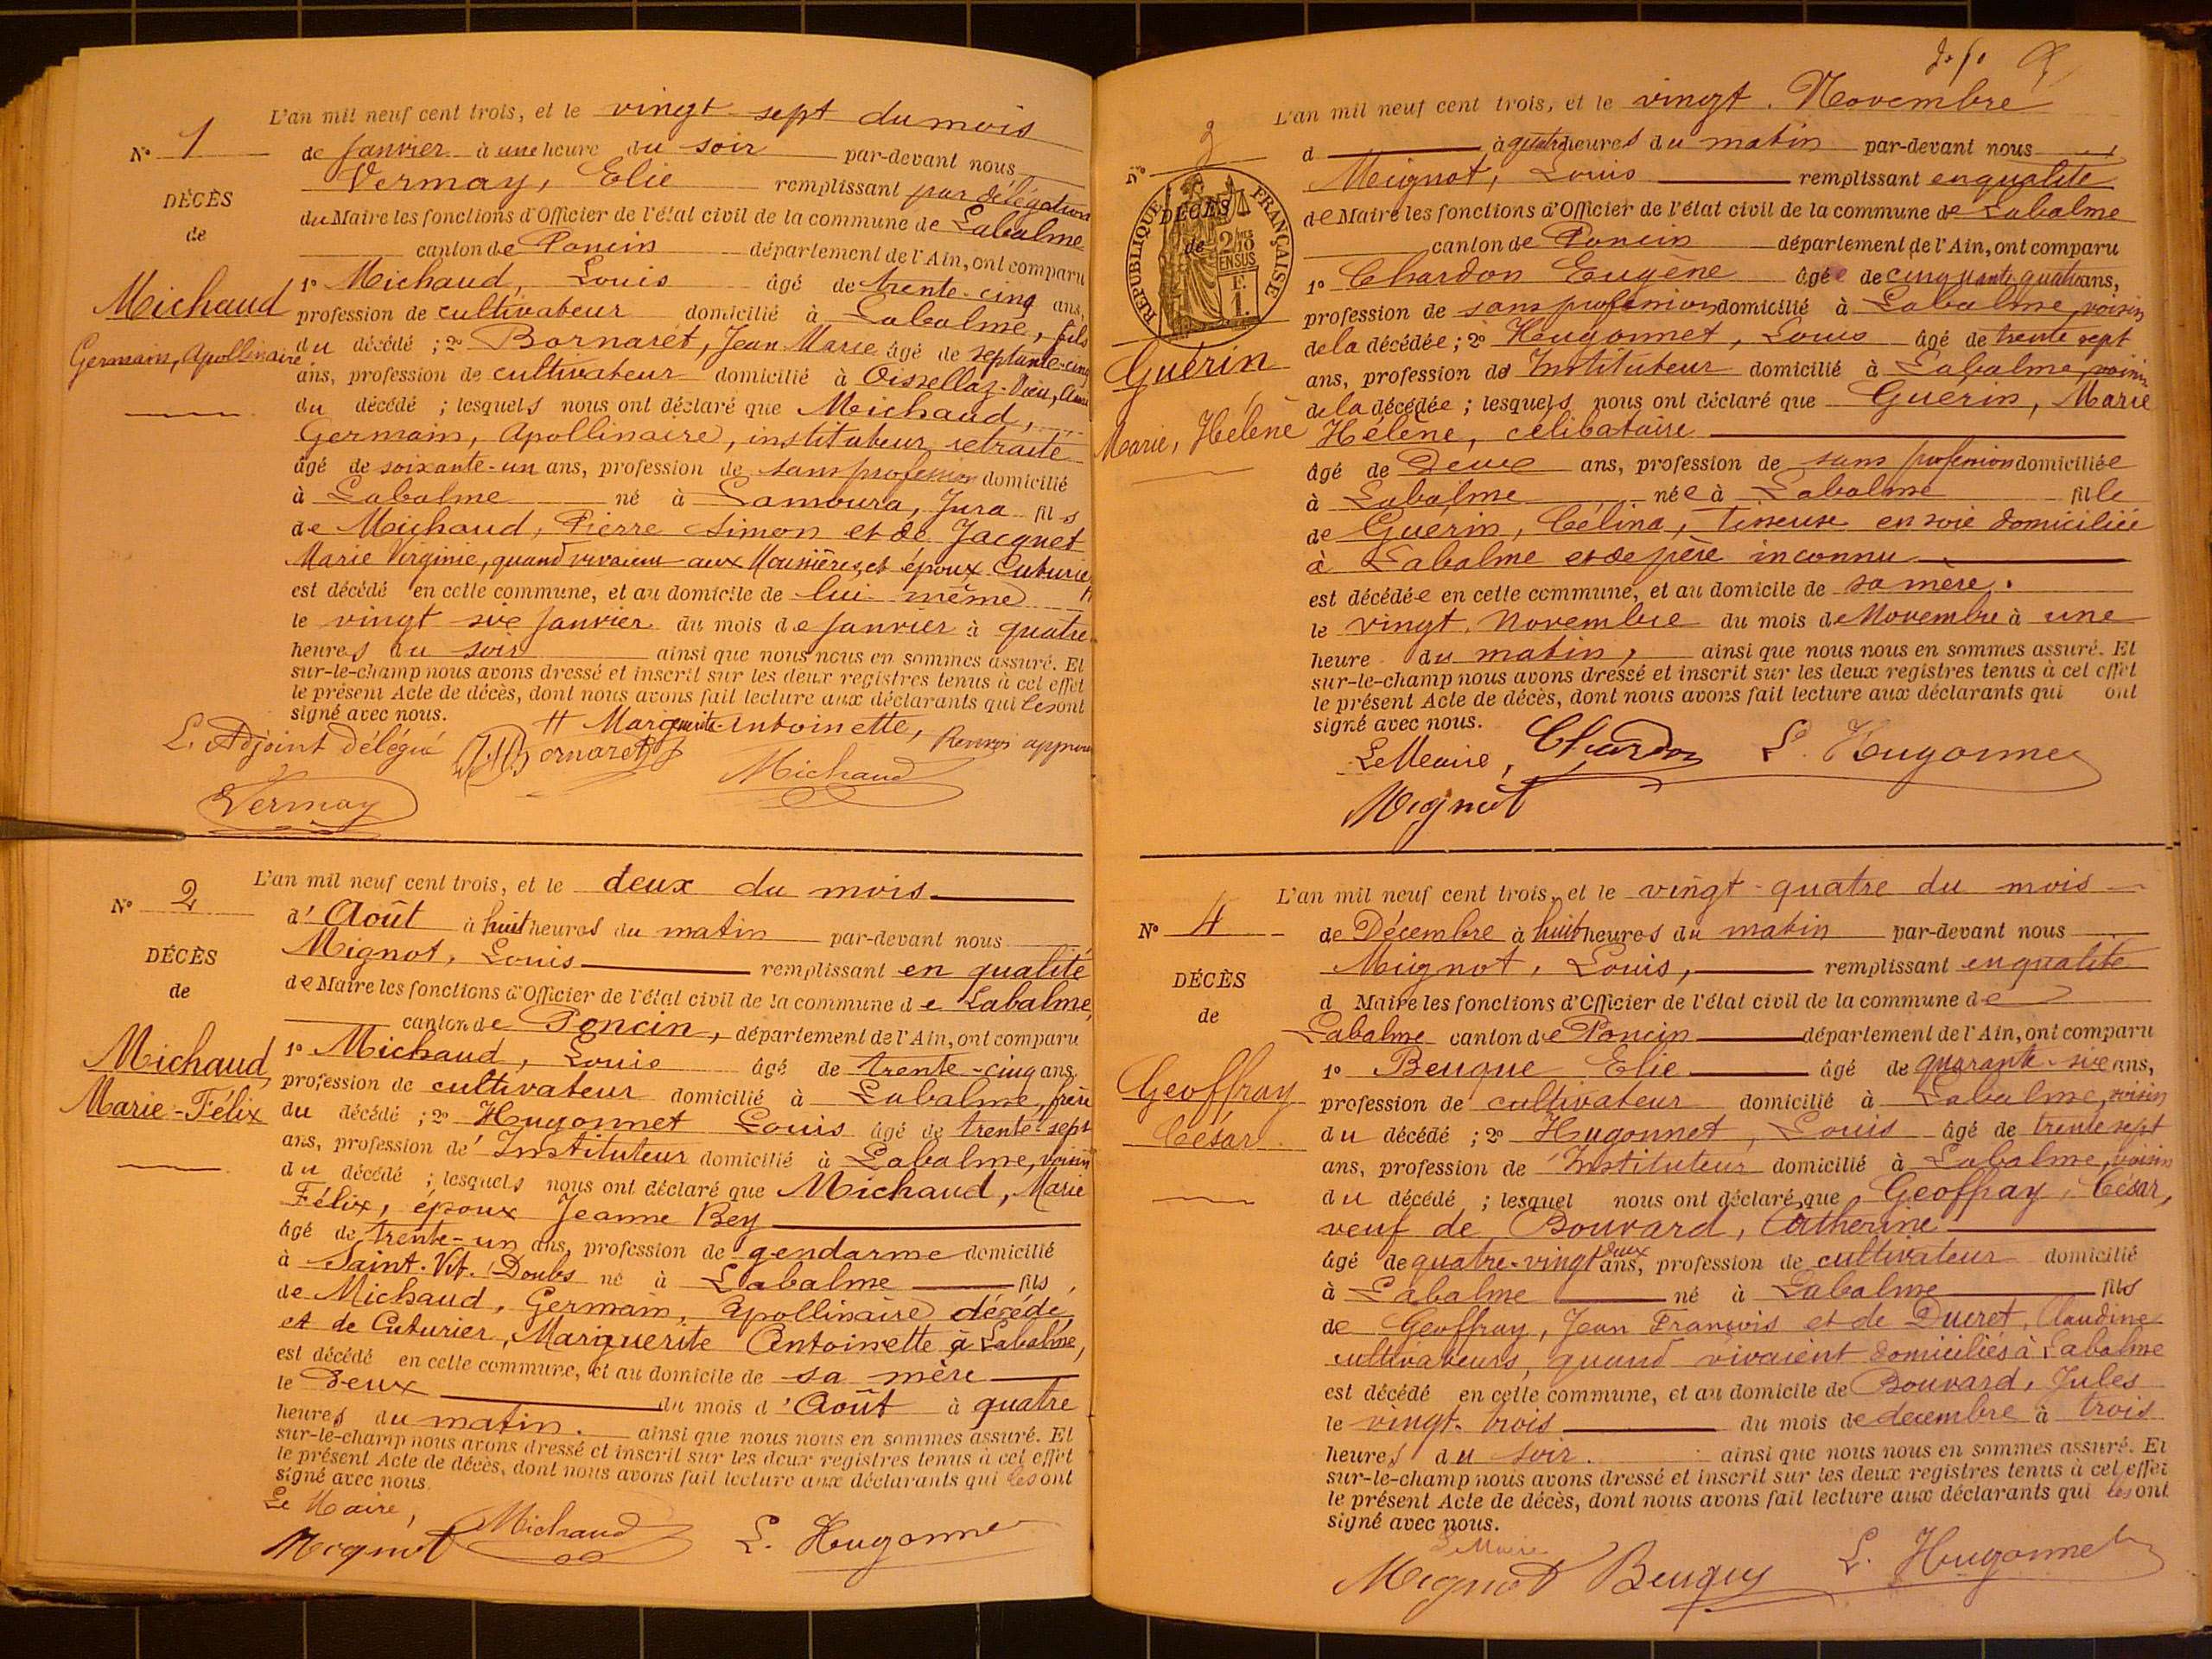 L'an mil neuf cent trois, et le vingt-sept du mois
N° 1
de Janvier à une heure du soir par-devant nous
Vermay, Elie remplissant par délégation
DÉCÈS
du Maire les fonctions d'Officier de l'état civil de la commune de Labalme
de
canton de Poncin département de l'Ain, ont comparu
Michaud
1° Michaud, Louis âgé de trente-cinq ans,
profession de cultivateur domicilié à Labalme, fils
Germain, Apollinaire
du décédé ; 2° Bornaret, Jean Marie âgé de septante-cinq
ans, profession de cultivateur domicilié à Oissellaz-Vieu, ami
du décédé ; lesquels nous ont déclaré que Michaud,
Germain, Apollinaire, instituteur retraité
âgé de soixante-un ans, profession de sans profession domicilié
à Labalme né à Lamoura, Jura fils
de Michaud, Pierre Simon et de Jacquet
Marie Virginie, quand vivaient aux Moussières, et époux Cuturier
est décédé en cette commune, et au domicile de lui-même #
le vingt six Janvier du mois de Janvier à quatre
heures du soir ainsi que nous nous en sommes assuré. Et
sur-le-champ nous avons dressé et inscrit sur les deux registres tenus à cet effet
le présent Acte de décès, dont nous avons fait lecture aux déclarants qui les ont
signé avec nous. # Marguerite-Antoinette, Renvoi approuvé
L'Adjoint délégué Bornaret Michaud
Vermay
L'an mil neuf cent trois, et le deux du mois
N° 2
d'Août à huit heures du matin par-devant nous
Mignot, Louis remplissant en qualité
DÉCÈS
de Maire les fonctions d'Officier de l'état civil de la commune de Labalme,
de
canton de Poncin, département de l'Ain, ont comparu
Michaud,
1° Michaud, Louis âgé de trente-cinq ans,
profession de cultivateur domicilié à Labalme, frère
Marie-Félix
du décédé ; 2° Hugonnet Louis âgé de trente-sept
ans, profession de Instituteur domicilié à Labalme, voisin
du décédé ; lesquels nous ont déclaré que Michaud, Marie
Félix, époux Jeanne Bey
âgé de trente-un ans, profession de gendarme domicilié
à Saint-Vit. Doubs né à Labalme fils
de Michaud, Germain, Apollinaire décédé,
et de Cuturier, Marguerite Antoinette à Labalme,
est décédé en cette commune, et au domicile de sa mère
le deux du mois d'Août à quatre
heures du matin. ainsi que nous nous en sommes assuré. Et
sur-le-champ nous avons dressé et inscrit sur les deux registres tenus à cet effet
le présent Acte de décès, dont nous avons fait lecture aux déclarants qui les ont
signé avec nous.
Le Maire,
Mignot Michaud L. Hugonnet
L'an mil neuf cent trois, et le vingt. Novembre
N° 3
d à quatre heures du matin par-devant nous
Mignot, Louis remplissant en qualité
DÉCÈS
de Maire les fonctions d'Officier de l'état civil de la commune de Labalme
de
RÉPUBLIQUE FRANÇAISE
canton de Poncin département de l'Ain, ont comparu
1° Chardon Eugène âgée de cinquante quatre ans,
profession de sans profession domicilié à Labalme, voisin
de la décédée ; 2° Hugonnet, Louis âgé de trente sept
Guérin
ans, profession de Instituteur domicilié à Labalme, voisin
de la décédée ; lesquels nous ont déclaré que Guérin, Marie
Marie, Hélène
Hélène, célibataire
âgé de deux ans, profession de sans profession domiciliée
à Labalme née à Labalme fille
de Guérin, Célina, Tisseuse en soie domiciliée
à Labalme et de père inconnu
est décédée en cette commune, et au domicile de sa mère.
le vingt. Novembre du mois de Novembre à une
heure du matin, ainsi que nous nous en sommes assuré. Et
sur-le-champ nous avons dressé et inscrit sur les deux registres tenus à cet effet
le présent Acte de décès, dont nous avons fait lecture aux déclarants qui ont
signé avec nous.
Le Maire, Chardon L. Hugonnet
Mignot
L'an mil neuf cent trois, et le vingt-quatre du mois
N° 4
de Décembre à huit heures du matin par-devant nous
Mignot, Louis, remplissant en qualité
DÉCÈS
d Maire les fonctions d'Officier de l'état civil de la commune de
de
Labalme canton de Poncin département de l'Ain, ont comparu
1° Beuque Elie âgé de quarante-six ans,
Geoffray
profession de cultivateur domicilié à Labalme, voisin
César
du décédé ; 2° Hugonnet, Louis âgé de trente sept
ans, profession de Instituteur domicilié à Labalme, voisin
du décédé ; lesquel nous ont déclaré que Geoffray, César,
veuf de Bouvard, Catherine
âgé de quatre-vingt deux ans, profession de cultivateur domicilié
à Labalme né à Labalme fils
de Geoffray, Jean François et de Ducret, Claudine
cultivateurs, quand vivaient domiciliés à Labalme
est décédé en cette commune, et au domicile de Bouvard, Jules
le vingt-trois du mois de décembre à trois
heures du soir. ainsi que nous nous en sommes assuré. Et
sur-le-champ nous avons dressé et inscrit sur les deux registres tenus à cet effet
le présent Acte de décès, dont nous avons fait lecture aux déclarants qui les ont
signé avec nous.
Le Maire
Mignot Beuque L. Hugonnet